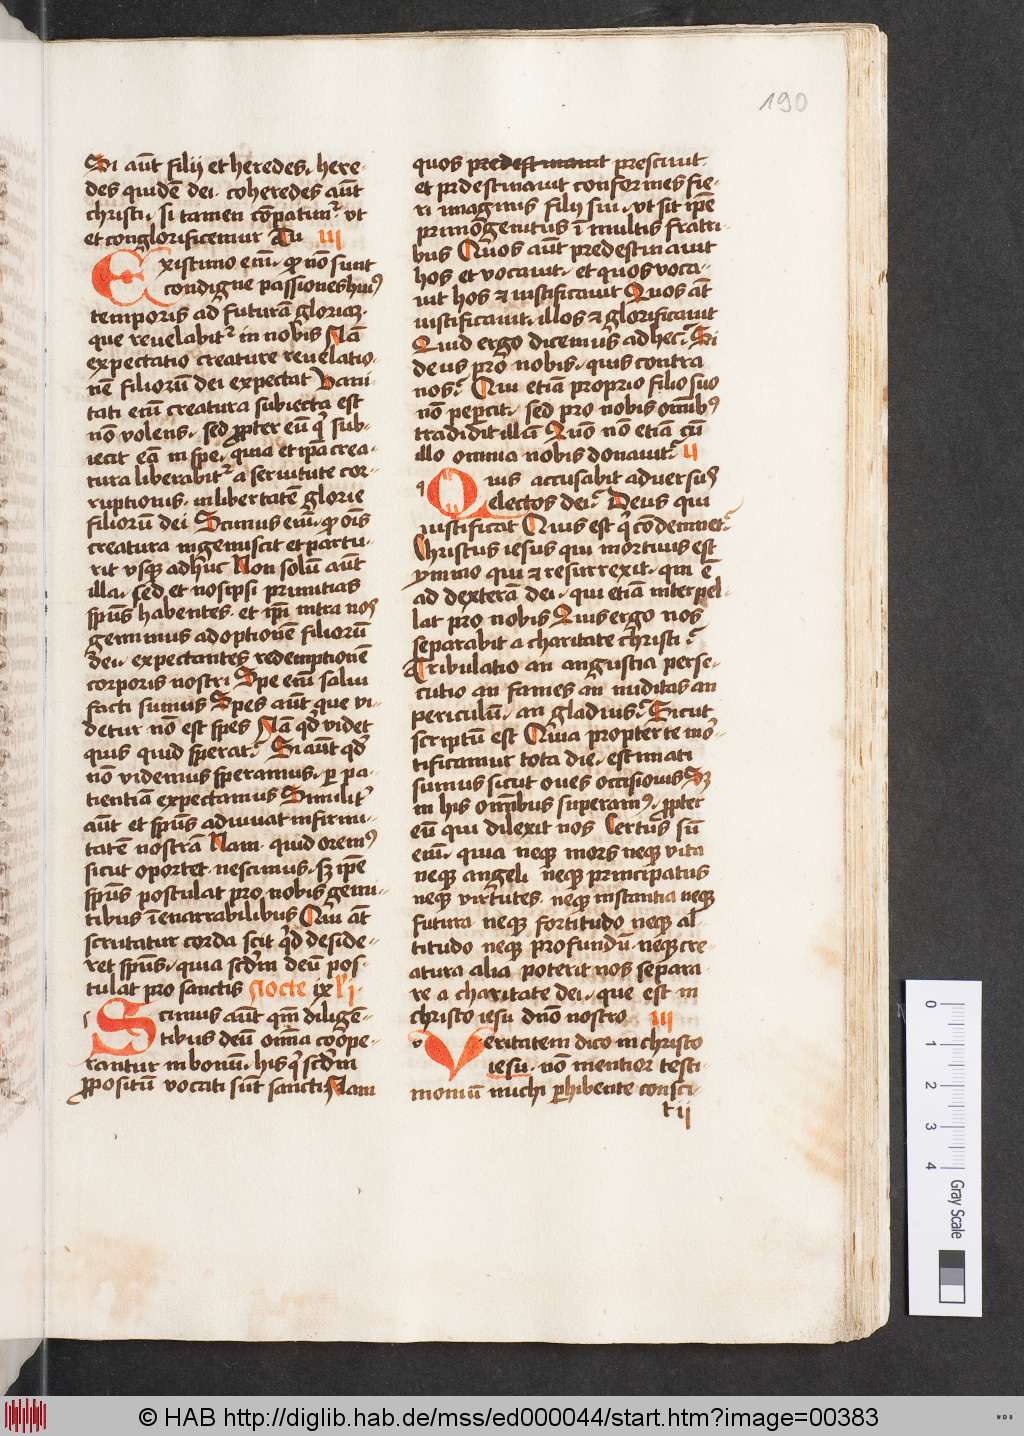 190
Si aūt filij et heredes. here-
des quidē dei. coheredes aūt
christi. si tamen cōpatimr vt
et conglorificemur Tu iij
Existimo eni. qr nō sunt
condigne passiones huius
temporis ad futurā gloriam.
que reuelabitr in nobis Nā
expectatio creature reuelatio-
nē filiorū dei expectat Vani
tati enī creatura subiecta est
nō volens. sed ꝓpter eū qi sub-
iecit eā in spe. quia et ipā crea-
tura liberabitr a seruitute cor-
ruptionis. in libertatē glorie
filiorū dei Scimus enī. qr oīs
creatura ingemiscit et partu-
rit vsqꝫ adhuc Non solū aūt
illa. sed et nosipsi primitias
sp̄us habentes. et ip̄i intra nos
gemimus adoptionē filiorū
dei. expectantes redemptionē
corporis nostri Spe enī salui
facti sumus Spes aūt que vi-
detur nō est spes Nā qd videt
quis quid sperat? Si aūt qd
nō videmus speramus. ꝑ pa-
tientiā expectamus Similitr
aūt et sp̄us adiuuat infirmi-
tatē nostrā Nam. quid oremus
sicut oportet. nescimus. sꝫ ipē
sp̄us postulat pro nobis gemi-
tibus īenarrabilibus Qui āt
scrutatur corda scit qd deside-
ret sp̄us. quia scdm deū pos-
tulat pro sanctis Nocte ix l i.
s Scimus aūt qm̄ diligē-
tibus deū omīa coōpe-
rantur in bonū. his qi scdm
ꝓpositū vocati sūt sancti Nam
quos predestinauit presciuit
et prdestinauit conformes fie-
ri imaginis filij sui. vt sit ipē
primogenitus ī multis fratri-
bus Quos aūt predestinauit
hos et vocauit. et quos voca-
uit hos ⁊ iustificauit Quos āt
iustificauit. illos ⁊ glorificauit
Quid ergo dicemus ad hec? Si
deus pro nobis. quis contra
nos? Qui etiā proprio filio suo
nō peꝑcit. sed pro nobis omībus
tradidit illū Quō nō etiā cū
illo omnia nobis donauit? ij
q Quis accusabit aduersus
electos dei? Deus qui
iustificat Quis est qi cōdemnet?
Christus iesus qui mortuus est
ymmo qui ⁊ resurrexit. qui ē
ad dexterā dei. qui etiam interpel-
lat pro nobis Quis ergo nos
separabit a charitate christi?
Tribulatio an angustia perse-
cutio an fames an nuditas an
periculū. an gladius? Sicut
scriptū est Quia propter te mor-
tificamur tota die. estimati
sumus sicut oues occisionis Sꝫ
in his omībus superamus. ꝓpter
eū qui dilexit nos Certus sū
enī. quia neqꝫ mors neqꝫ vita
neqꝫ angeli neqꝫ principatus
neqꝫ virtutes. neqꝫ instantia neqꝫ
futura neqꝫ fortitudo neqꝫ al-
titudo neqꝫ profundū. neqꝫ cre-
atura alia poterit nos separa-
re a charitate dei. que est in
christo iesu dn̄o nostro iij
v Veritatem dico in christo
iesu. nō mentior testi-
moniū michi ꝑhibente consci-
t ij
0 1 2 3 4 Gray Scale
© HAB http://diglib.hab.de/mss/ed000044/start.htm?image=00383